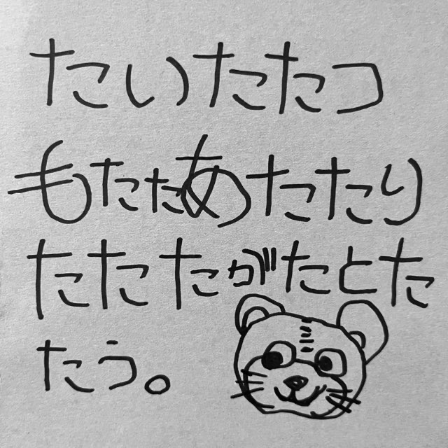 たいたたつ
もたたあたたり
たたたがたとた
たう。